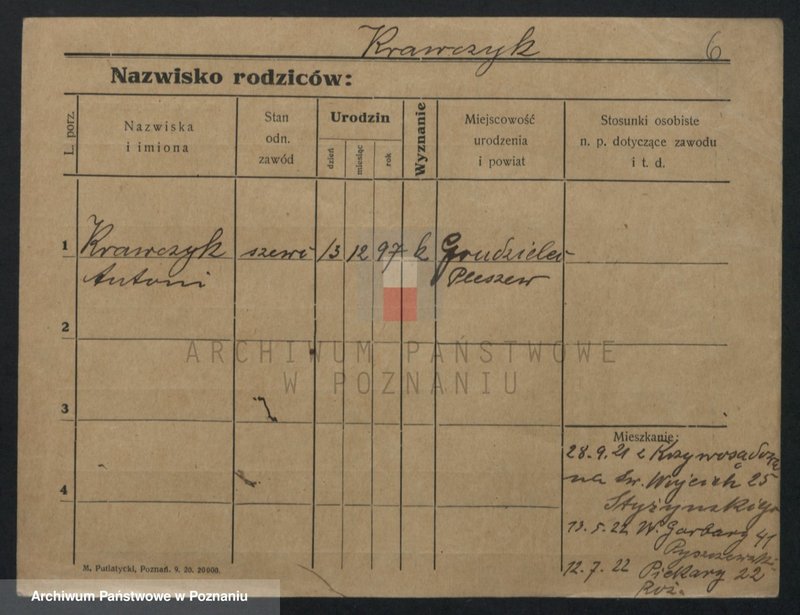 Krawczyk 6
Nazwisko rodziców:
L. porz.
Nazwiska
i imiona
Stan
odn.
zawód
Urodzin
dzień
miesiąc
rok
Wyznanie
Miejscowość
urodzenia
i powiat
Stosunki osobiste
n. p. dotyczące zawodu
i t. d.
1 Krawczyk szewc 13 12 97 k Grudzielec
Antoni Pleszew
2
ARCHIWUM PAŃSTWOWE
W POZNANIU
3
Mieszkanie:
28.9.21 z Krzywosądowa
na Św. Wojciech 25
Styżyńskiego
4
13.5.22 W. Garbary 41
12.7.22 Piekary 22
M. Putiatycki, Poznań. 9. 20. 20000.
Archiwum Państwowe w Poznaniu